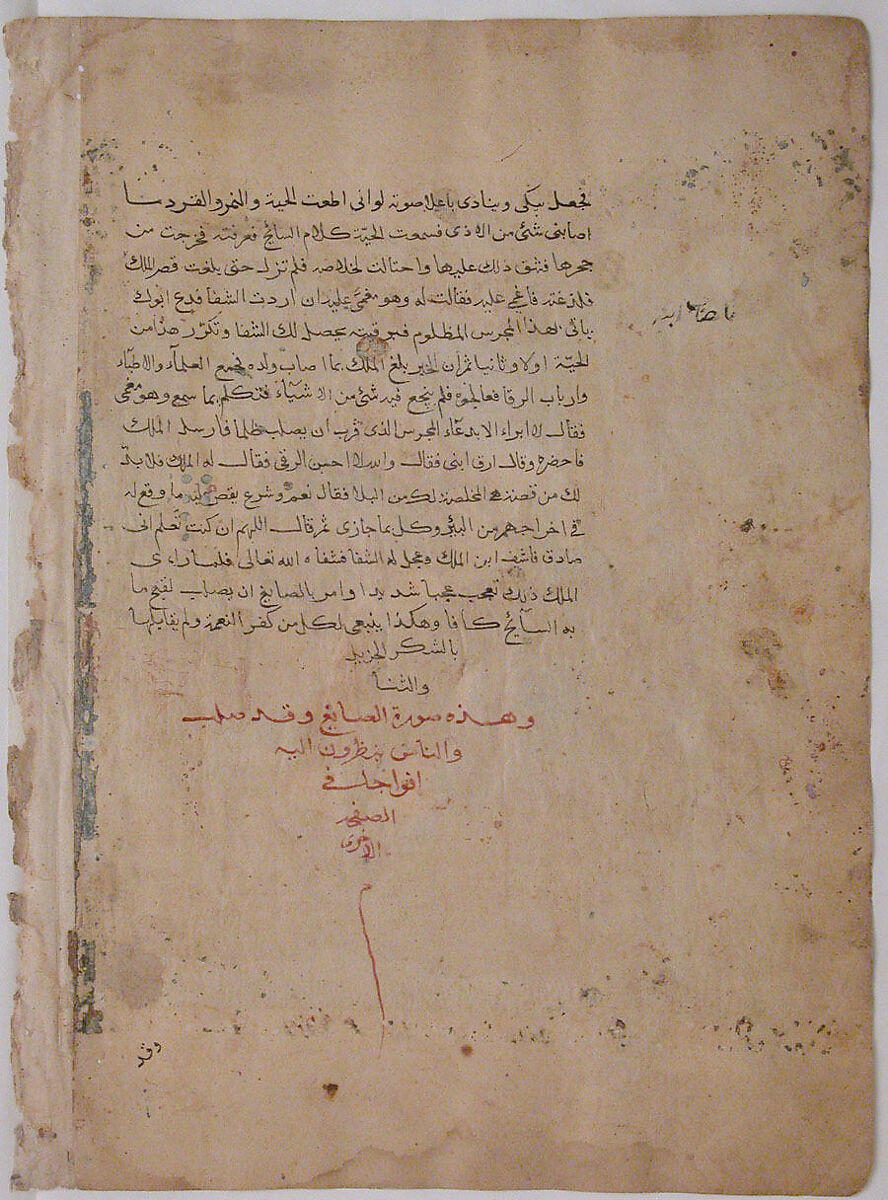 فجعل يبكى وينادى باعلا صوته لو انى اطعت الحية والنمر والقرد ما
اصابنى شئ من الاذى فسمعت الحيّة كلام السائح فعرفته فخرجت من
جحرها فشق ذلك عليها واحتالت لخلاصه فلم تزل حتى بلغت قصر الملك
فلدغته فاغمى عليه فقالت له وهو مغمىً عليه ان اردت الشفا فدع ابوك
ياتى لهذا المجرس المظلوم فبرقيته يحصل لك الشفا وتكرّر هذا من
الحيّة اولا وثانيا ثم ان الخبر بلغ الملك بما اصاب ولده فجمع العلمآء والاطبآء
وارباب الرقا فعالجوه فلم ينجع فيه شئ من الاشيآء فتكلم بما سمع وهو مغمى
فقال لا ابراء الا بدعآء المجرس الذى قرب ان يصلب ظلما فارسل الملك
فاحضره وقال ارق ابنى فقال والله لا احسن الرقى فقال له الملك فلا بدّ
لك من قصة هى المخلصة لك من البلا فقال نعم وشرع يقص عليه ما وقع له
فى اخراجهم من البئر وكل بما جازى ثم قال اللهم ان كنت تعلم انى
صادق فاشف ابن الملك وعجل له الشفا فشفاه الله تعالى فلما راءى
الملك ذلك تعجب عجبا شديدا وامر بالصايغ ان يصلب لقبح ما
به السآئح كافا وهكذا ينبغى لكل من كفر النعمة ولم يقابلها
بالشكر الجزيل
والثنا
وهذه صورة الصايغ وقد صلب
والناس ينظرون اليه
افواجا فى
الصفحه
الاخرى
وقد